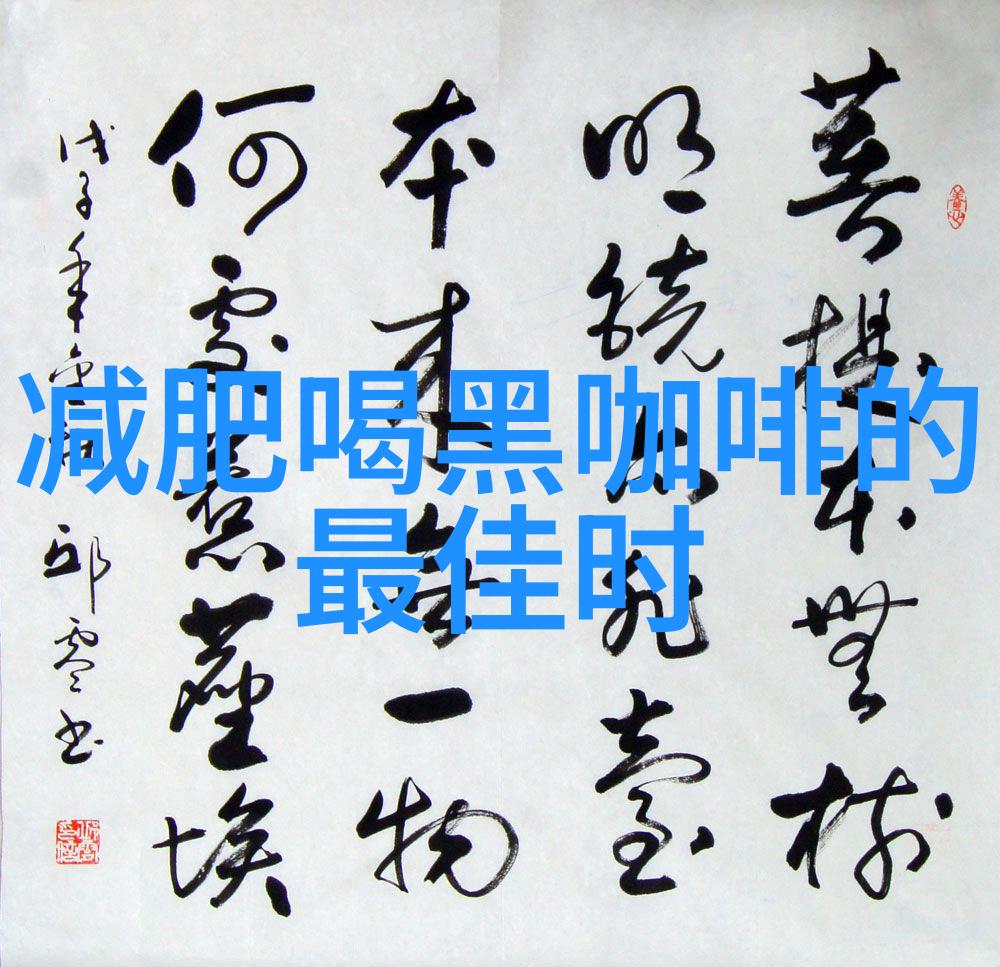 减肥喝黑咖啡的
最佳时
菩提本無樹
明鏡亦非臺
本來無一物
何處惹塵埃
戊子年 邱零书